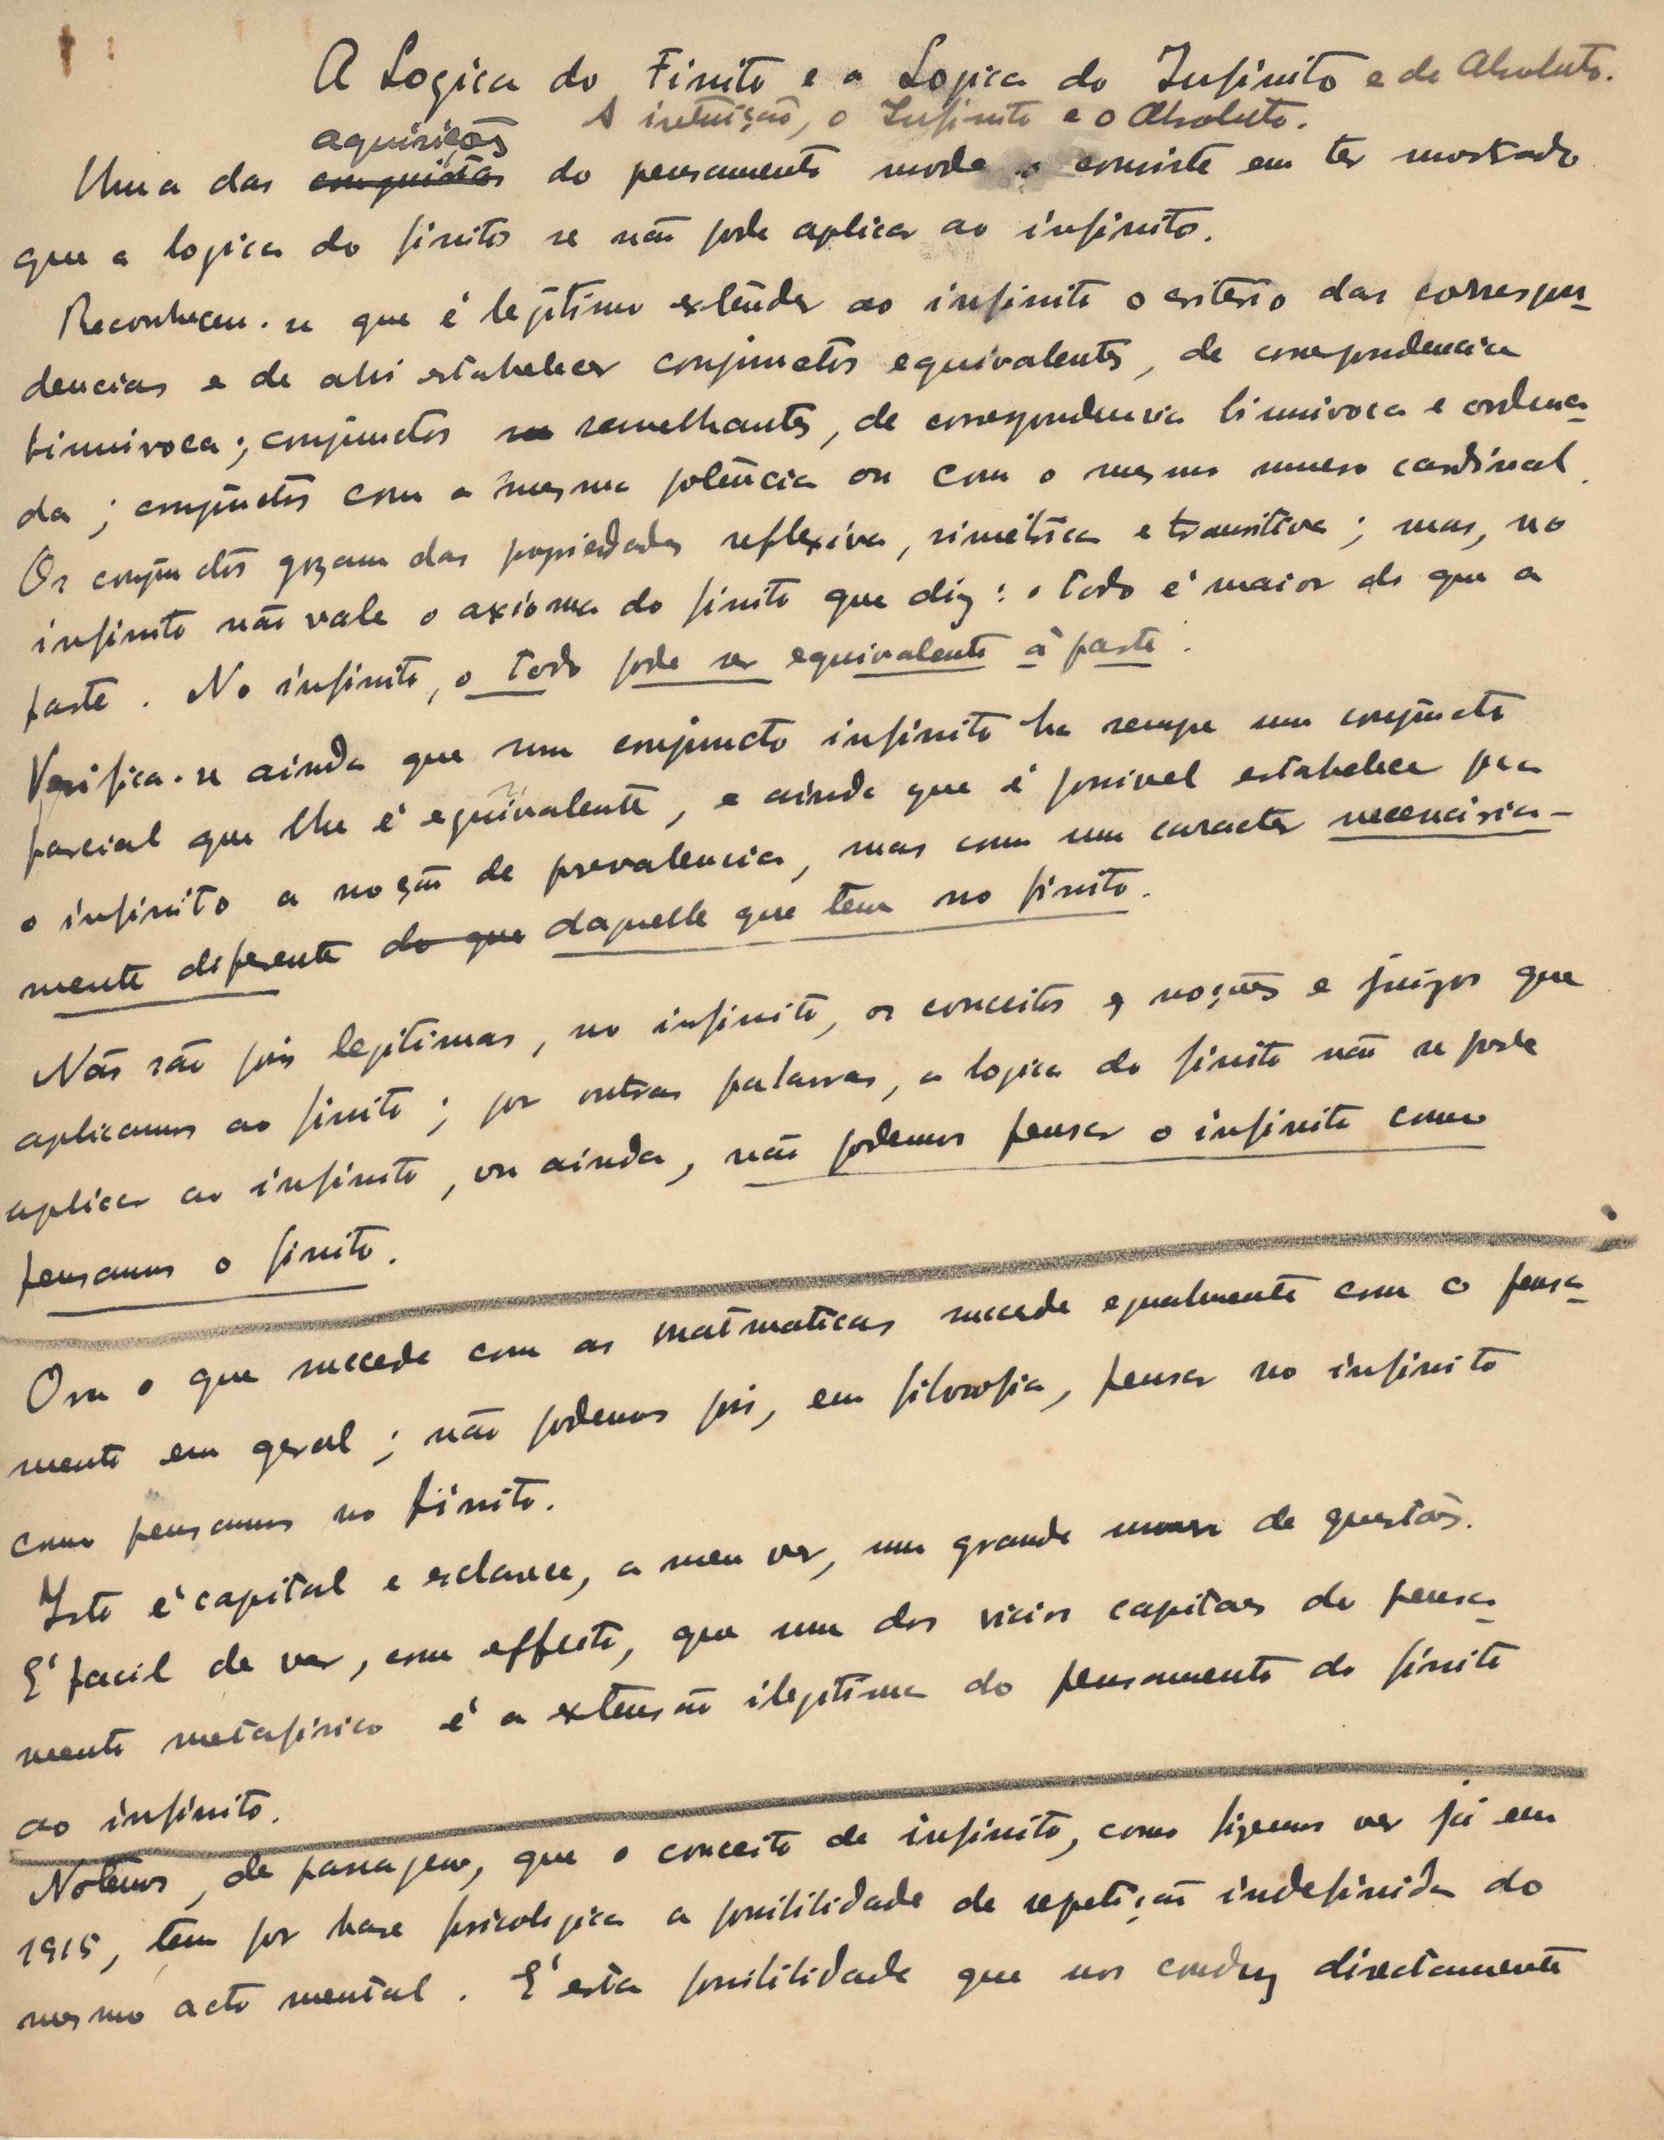 A Logica do Finito e a Logica do Infinito e do Absoluto.
A intuição, o Infinito e o Absoluto.
aquisições
Uma das conquistas do pensamento consiste em ter mostrado
que a logica do finito se não pode aplicar ao infinito.
Reconheceu-se que é legitimo extender ao infinito o critério das correspon-
dencias e de ahi estabelecer conjunctos equivalentes, de correspondencia
biunivoca; conjunctos se semelhantes, de correspondencia biunivoca e ordena-
da; conjunctos com a mesma potência ou com o mesmo numero cardinal.
Os conjunctos gozam das propriedades reflexiva, simétrica e transitiva; mas, no
infinito não vale o axioma do finito que diz: o todo é maior do que a
parte. No infinito, o todo pode ser equivalente à parte.
Verifica-se ainda que num conjuncto infinito ha sempre um conjuncto
parcial que lhe é equivalente, e ainda que é possivel estabelecer para
o infinito a noção de prevalencia, mas com um caracter necessaria-
mente diferente do que daquelle que tem no finito.
Não são pois legitimas, no infinito, os conceitos e noções e juizos que
aplicamos ao finito; por outras palavras, a logica do finito não se pode
aplicar ao infinito, ou ainda, não podemos pensar o infinito como
pensamos o finito.
Ora o que succede com as matmaticas succede egualmente com o pensa-
mento em geral; não podemos pois, em filosofia, pensar no infinito
como pensamos no finito.
Isto é capital e esclarece, a meu ver, um grande numero de questões.
E' facil de ver, com effeito, que um dos vicios capitaes do pensa-
mento metafisico é a extensão ilegitima do pensamento do finito
ao infinito.
Notemos, de passagem, que o conceito de infinito, como fizemos ver já em
1915, tem por base psicologica a possibilidade de repetição indefinida do
mesmo acto mental. E' esta possibilidade que nos conduz directamente